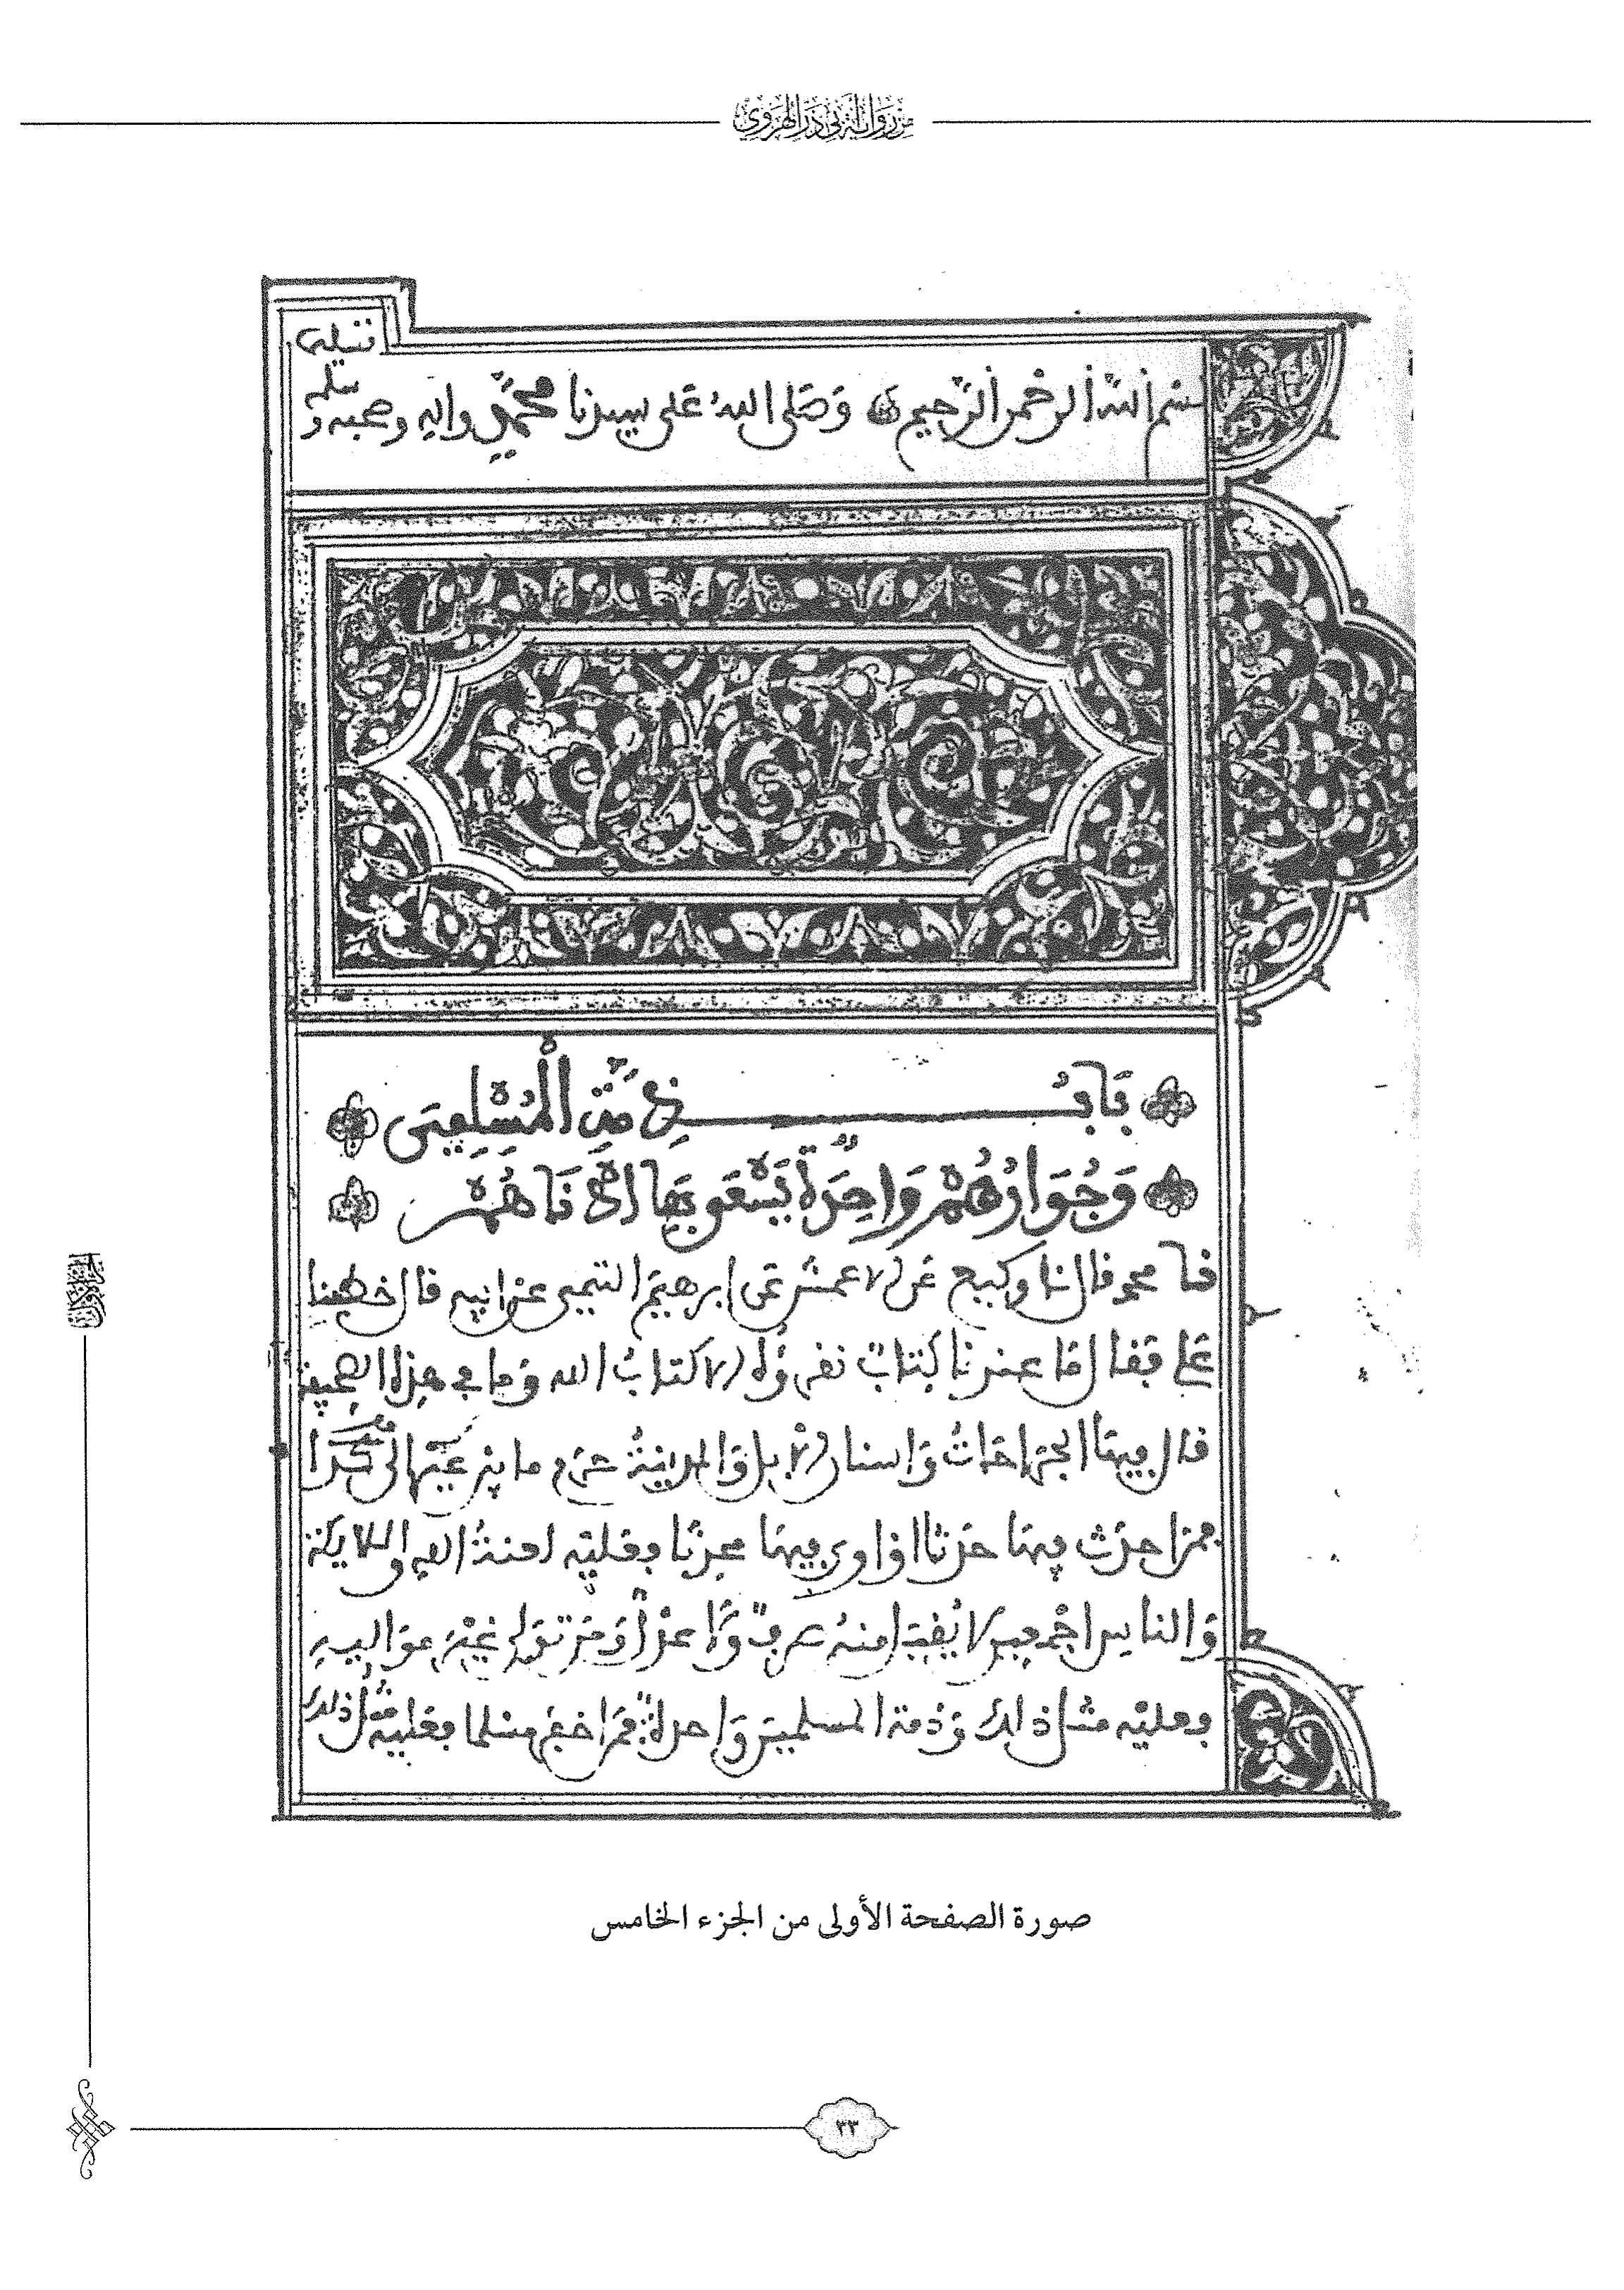 من رواية أبي ذر الهروي
بسم الله الرحمن الرحيم وصلى الله على سيدنا محمد وآله وصحبه وسلم تسليما
باب ذمة المسلمين
وجوارهم واحدة يسعى بها أدناهم
نا محمد قال انا وكيع عن الاعمش عن ابرهيم التيمي عن ابيه قال خطبنا
علي فقال ما عندنا كتاب نقرؤه الا كتاب الله وما في هذه الصحيفة
قال فيها الجراحات واسنان الابل والمدينة حرم ما بين عير الى كذا
فمن احدث فيها حدثا او اوى فيها محدثا فعليه لعنة الله والملايكة
والناس اجمعين لا يقبل منه صرف ولا عدل ومن تولى غير مواليه
فعليه مثل ذلك وذمة المسلمين واحدة فمن اخفر مسلما فعليه مثل ذلك
صورة الصفحة الأولى من الجزء الخامس
٣٣